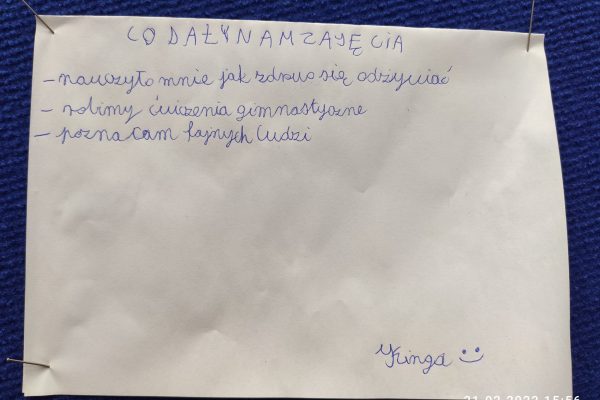 CO DAŁY NAM ZAJĘCIA
- nauczyło mnie jak zdrowo się odżywiać
- robimy ćwiczenia gimnastyczne
- poznałam fajnych ludzi
Kinga :)